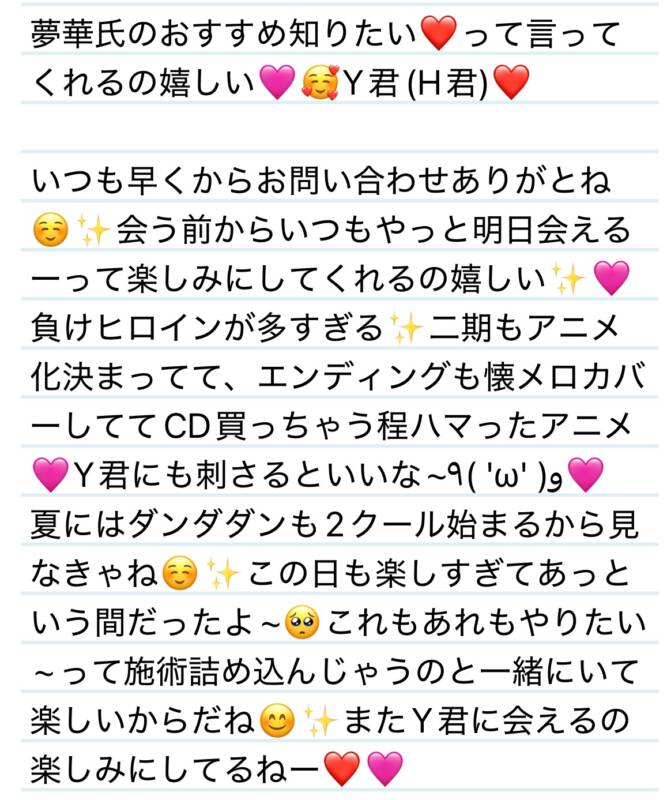 夢華氏のおすすめ知りたい❤️って言って
くれるの嬉しい💗🥰Y君(H君)❤️
いつも早くからお問い合わせありがとね
☺️✨会う前からいつもやっと明日会える
ーって楽しみにしてくれるの嬉しい✨💗
負けヒロインが多すぎる✨二期もアニメ
化決まってて、エンディングも懐メロカバ
ーしててCD買っちゃう程ハマったアニメ
💗Y君にも刺さるといいな~٩( 'ω' )و💗
夏にはダンダダンも2クール始まるから見
なきゃね☺️✨この日も楽しすぎてあっと
いう間だったよ~🥺これもあれもやりたい
~って施術詰め込んじゃうのと一緒にいて
楽しいからだね😊✨またY君に会えるの
楽しみにしてるねー❤️💗